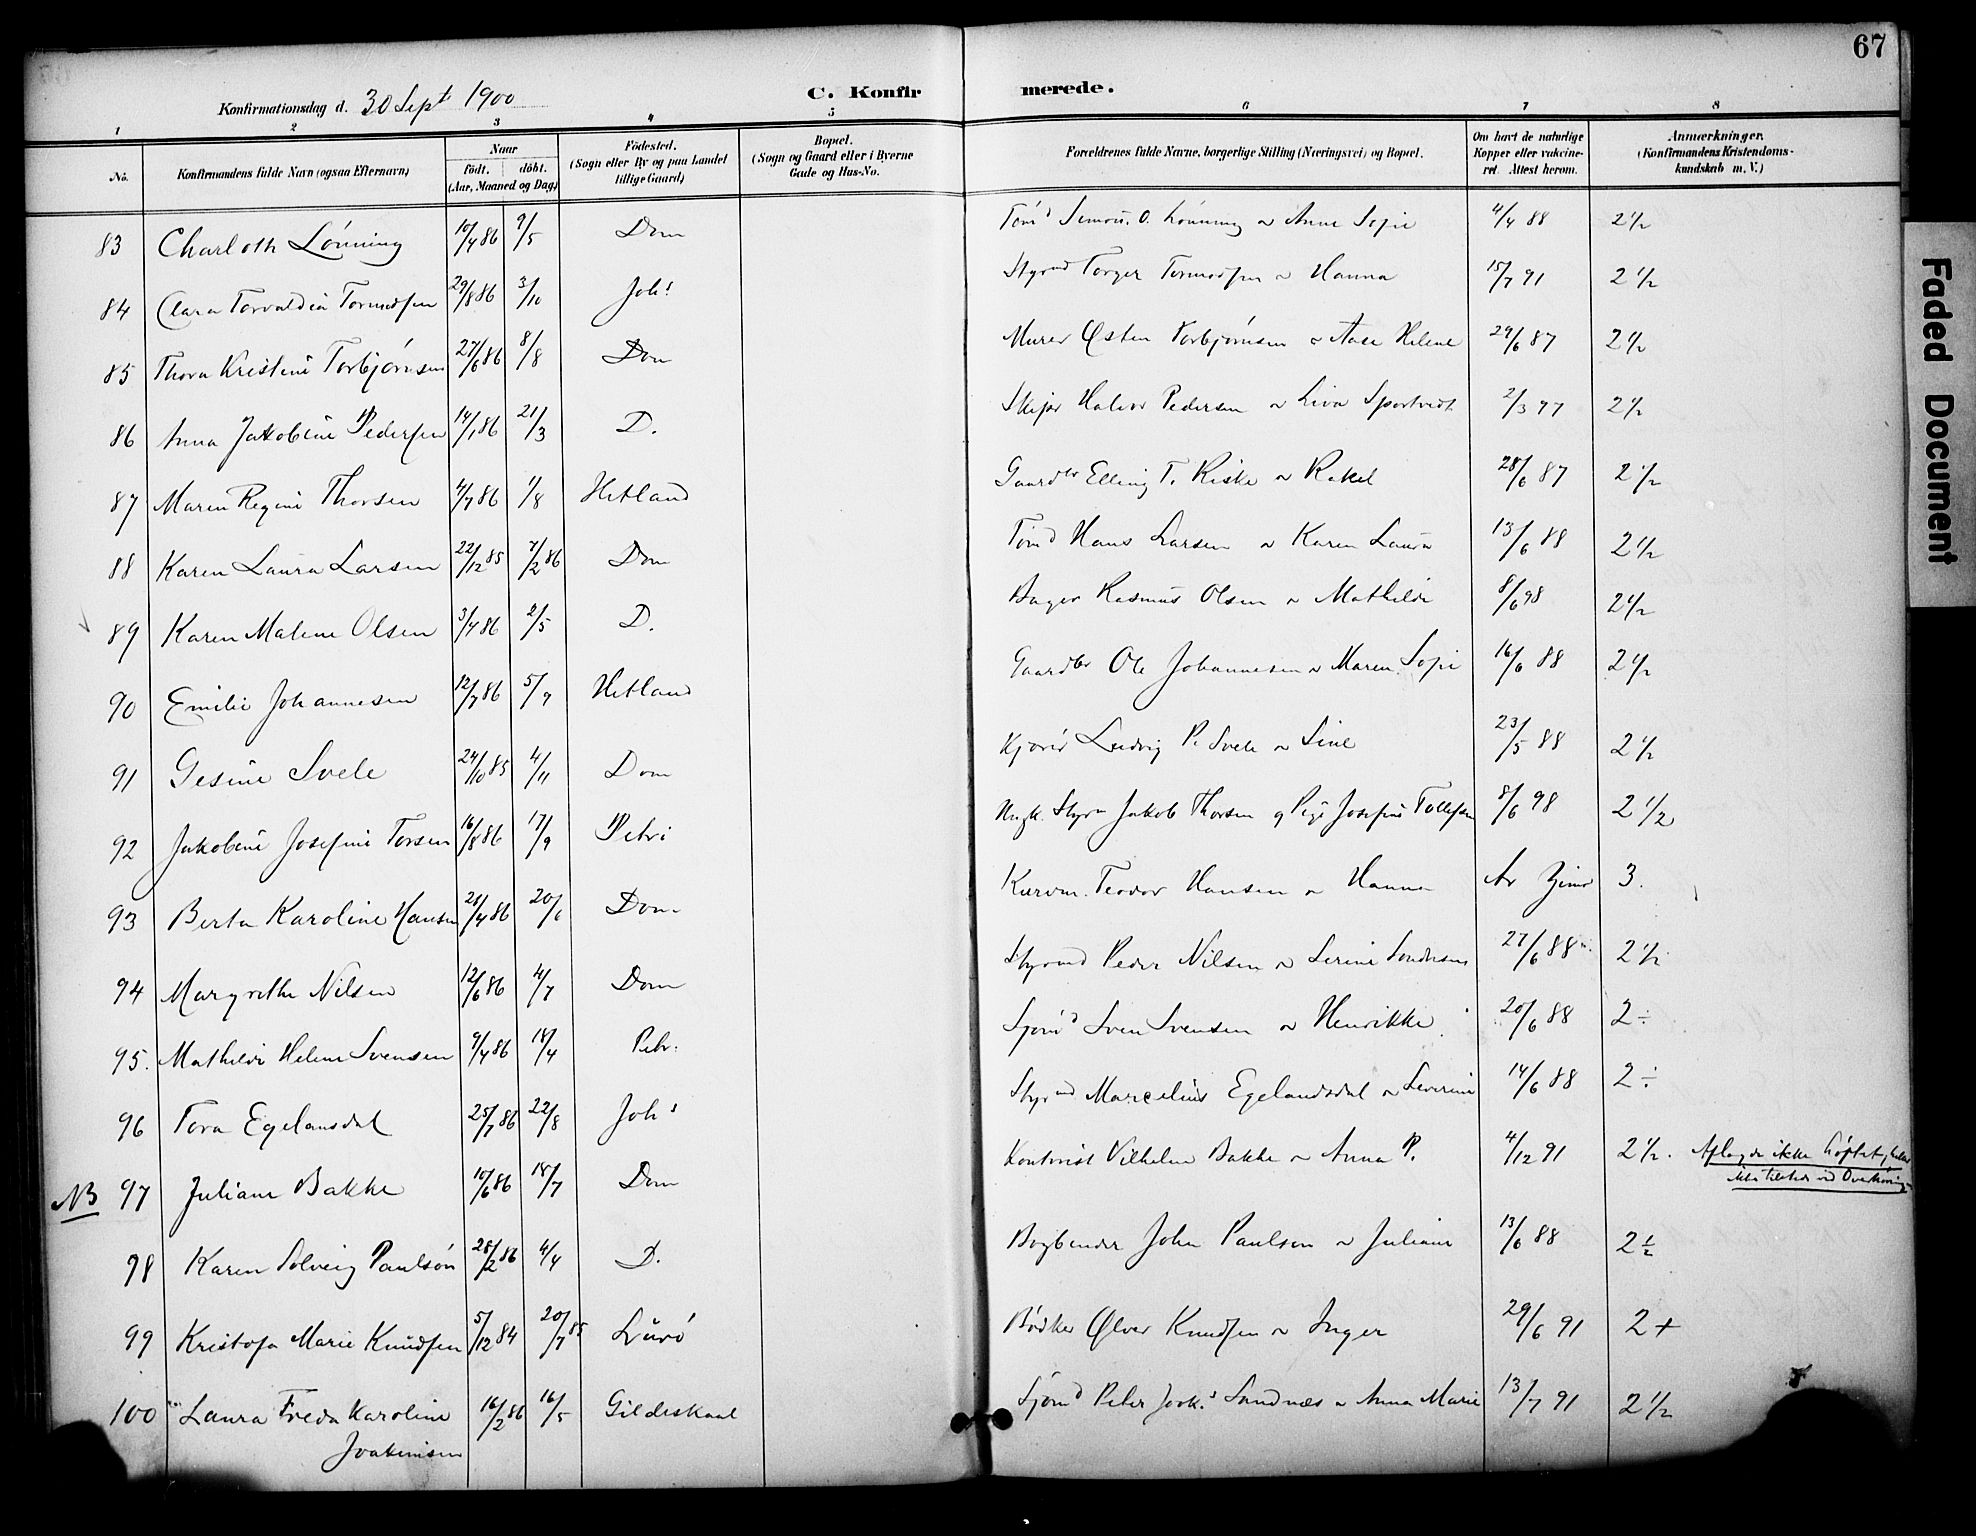 67
Konfirmationsdag d. 30 Sept 1900 C. Konfirmerede.
1 2 3 4 5 6 7 8
No. Konfirmandens fulde Navn (ogsaa Efternavn) Naar födt. döbt. (Aar, Maaned og Dag) Födested. (Sogn eller By og paa Landet tillige Gaard) Bopæl. (Sogn og Gaard eller i Byerne Gade og Hus-No. Forældrenes fulde Navne, borgerlige Stilling (Næringsvei) og Bopæl. Om havt de naturlige Kopper eller vakcineret. Attest herom. Anmærkninger. (Konfirmandens Kristendomskundskab m. V.)
83 Charloth Lönning 10/4 86 9/5 Dom Tömd Simon. O. Lönning o Anne Sofie 4/4 88 2 1/2
84 Clara Torvaldia Tormodsen 29/8 86 3/10 Johs Styrmd Torger Tormodsen o Hanna 15/7 91 2 1/2
85 Thora Kristine Torbjörnsen 27/6 86 8/8 Dom Murer Østen Torbjörnsen o Aase Helene 29/6 87 2 1/2
86 Anna Jakobine Pedersen 14/1 86 21/3 D. Skipr Halvor Pedersen o Liva 2/3 97 2 1/2
87 Maren Regine Thorsen 4/7 86 1/8 Hetland Gaardbr Elling T. Riske o Rakel 28/6 87 2 1/2
88 Karen Laura Larsen 22/12 85 7/2 86 Dom Tömd Hans Larsen o Karen Laura 13/6 88 2 1/2
89 Karen Malene Olsen 3/4 86 2/5 D. Bager Rasmus Olsen o Mathilde 8/6 98 2 1/2
90 Emilie Johannesen 12/7 86 5/9 Hetland Gaardbr Ole Johannesen o Maren Sofie 16/6 88 2 1/2
91 Gesine Svele 24/10 85 4/11 Dom Ludvig P. Svele o Sine 23/5 88 2 1/2
92 Jakobine Josefine Torsen 16/8 86 17/9 Petri Ungk. Styrm Jakob Thorsen og Pige Josefine Tollefsen 8/6 98 2 1/2
93 Berta Karoline Hansen 28/4 86 20/6 Dom Kurvm. Teodor Hansen o Hanna 3.
94 Margrethe Nilsen 12/6 86 4/7 Dom Styrmd Peder Nilsen o Serine 27/6 88 2 1/2
95. Mathilde Helene Svensen 9/4 86 18/4 Petr. Sjömd Sven Svensen o Henrikke 20/6 88 2 ÷
96 Tora Egelansdal 25/7 86 22/8 Johs Styrmd Marcelius Egelandsdal o Severine 14/6 88 2 ÷
NB 97 Juliane Bakke 10/6 86 18/7 Dom Kontorist Vilhelm Bakke o Anna P. 4/12 91 2 1/2. Aflagde ikke Löftet, heller
ikke tilstede ved Overhöring
98 Karen Solveig Paulsön 28/2 86 4/4 D. Bogbinder John Paulson o Juliane 13/6 88 2 1/2
99 Kristofa Marie Knudsen 5/12 84 20/7 85 Lurö Bödker Ølver Knudsen o Inger 29/6 91 2 +
100 Laura Freda Karoline Joakimsen 16/2 86 16/5 Gildeskaal Sjömd Peter Joak.s Sandnæs o Anna Marie 13/7 91 2 1/2
Faded Document